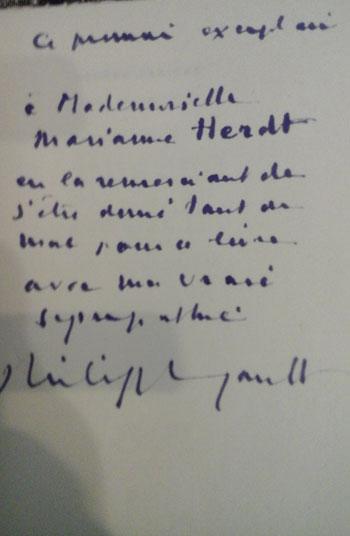 Ce premier exemplaire
à Mademoiselle
Marianne Herdt
en la remerciant de
s'être donné tant de
mal pour ce livre
avec ma vraie
sympathie
Philippe